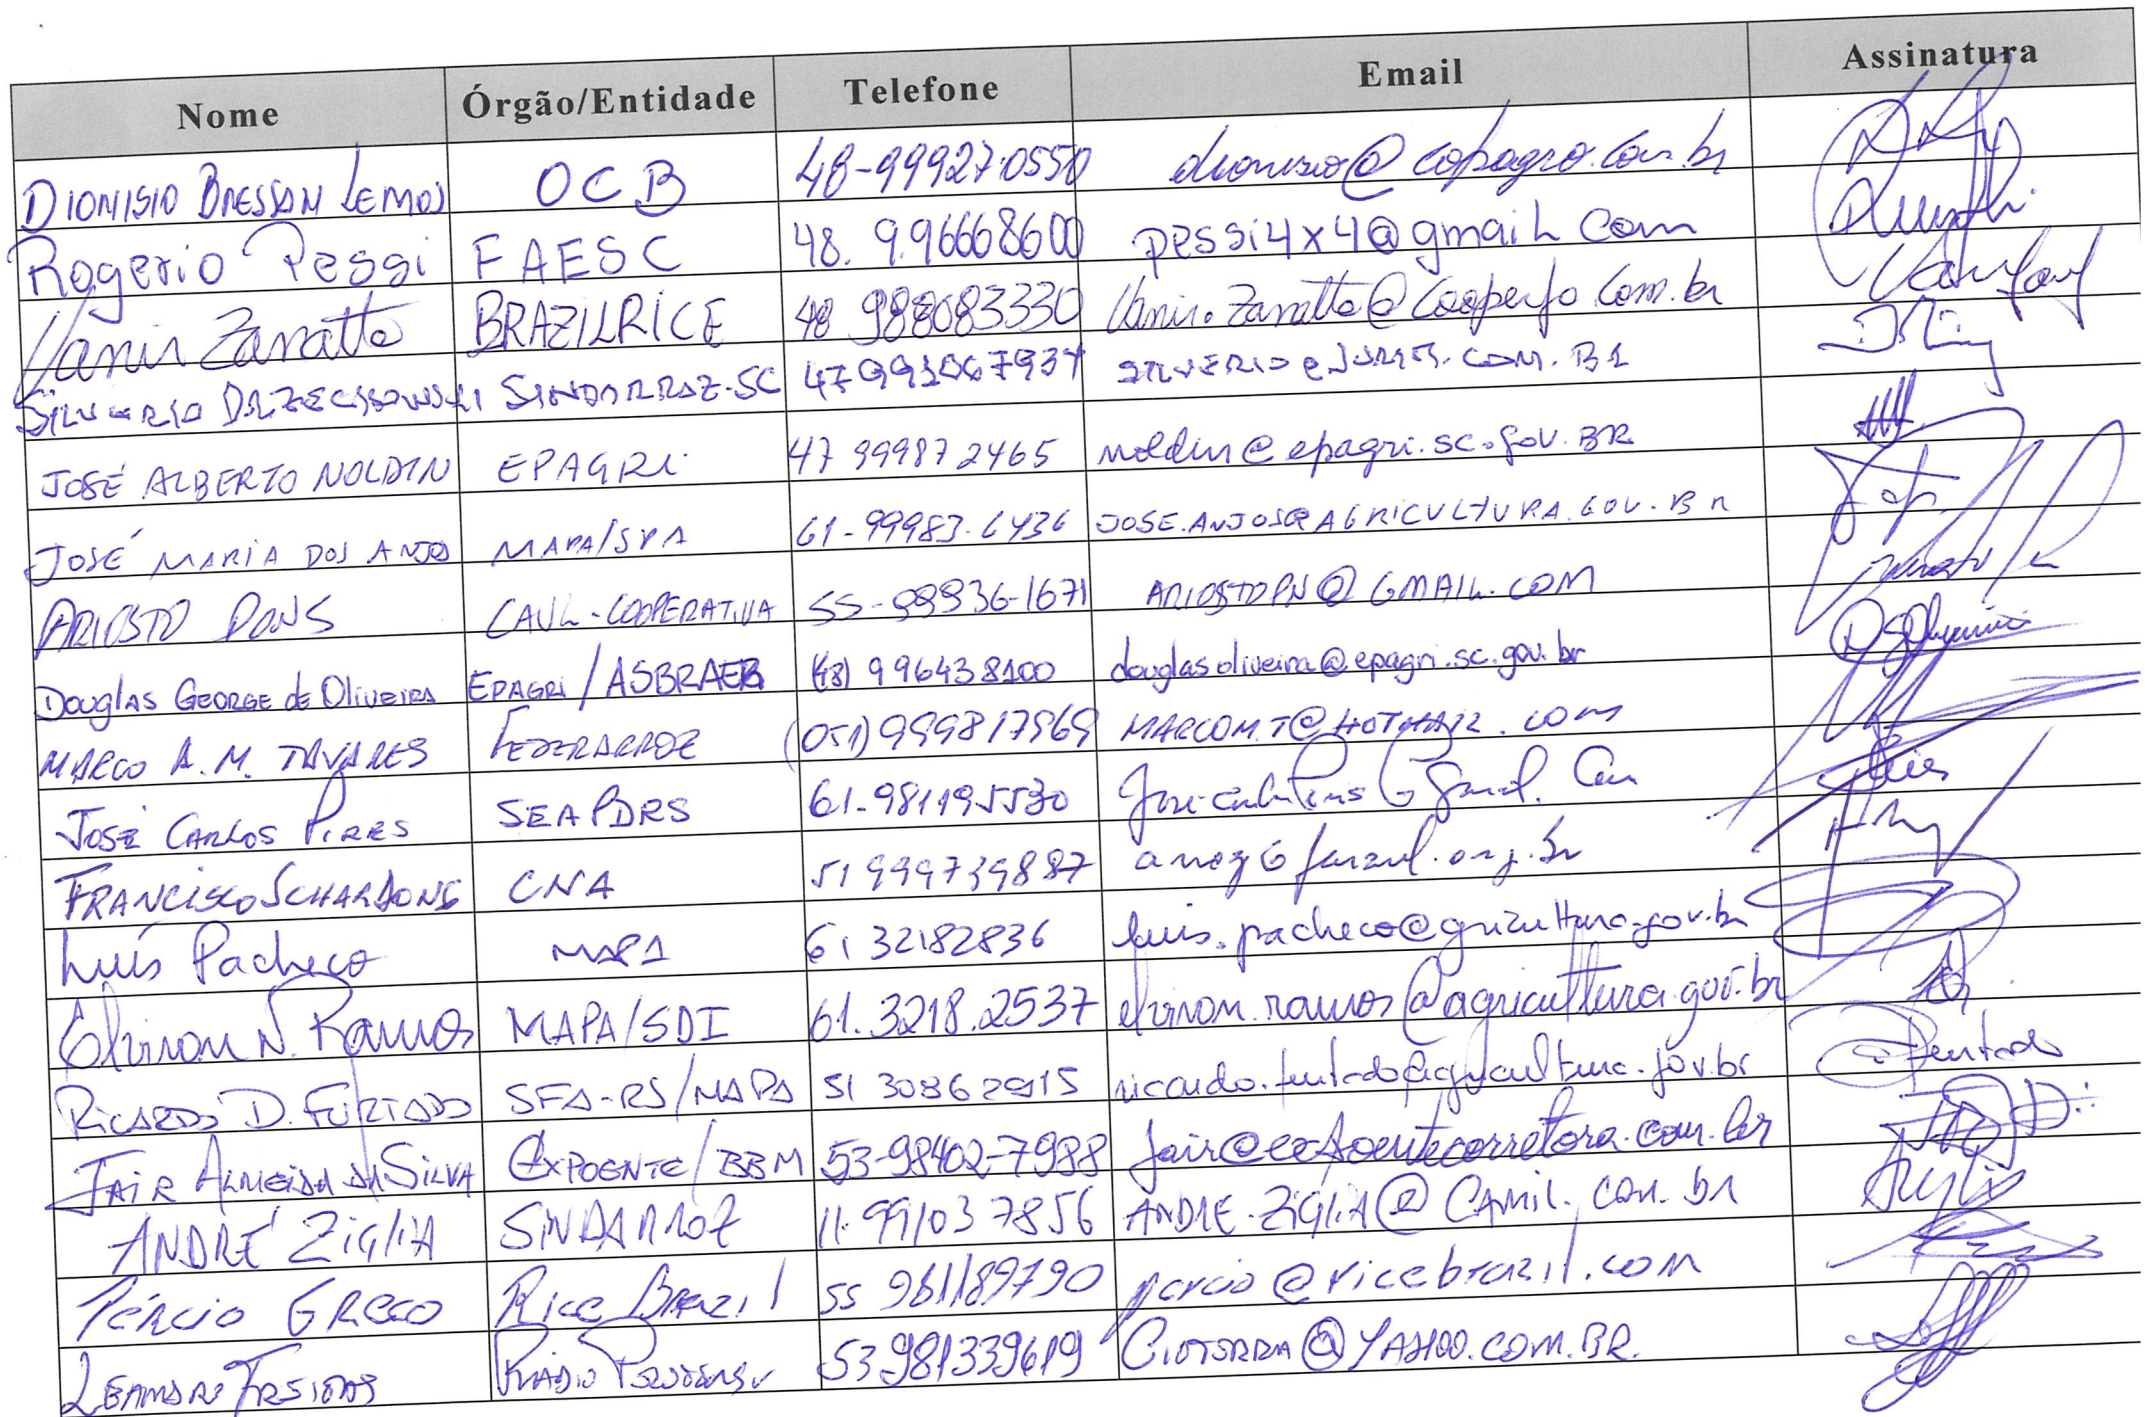 Nome Órgão/Entidade Telefone Email Assinatura
DIONISIO BRESSAN LEMOS OCB 48-99927.0550 dionisio@copagro.com.br
Rogerio Pessi FAESC 48. 9.96668600 pessi4x4@gmail com
Vanir Zanatta BRAZILRICE 48 988083330 Vanir.Zanatta@Cooperja.Com.br
SINDARROZ-SC
JOSÉ ALBERTO NOLDIN EPAGRI 47 999872465 noldin@epagri.sc.gov.BR
JOSÉ MARIA DOS ANJOS MAPA/SPA 61-99983-6436 JOSE.ANJOS@AGRICULTURA.GOV.BR
ARIOSTO PONS CAUL-COOPERATIVA 55-99936-1671 ARIOSTOPN@GMAIL.COM
Douglas George de Oliveira EPAGRI/ASBRAER (48) 996438100 douglasoliveira@epagri.sc.gov.br
MARCO A. M. TAVARES FEDERARROZ (051) 999817969 MARCOM.T@HOTMAIL.COM
JOSÉ CARLOS PIRES SEAPDRS 61-981195530
FRANCISCO SCHARDONG CNA 51 999739887
Luís Pacheco MAPA 61 32182836 luis.pacheco@gricultura.gov.br
Elvison N. Ramos MAPA/SDI 61.3218.2537 elvison.ramos@agricultura.gov.br
RICARDO D. FURTADO SFA-RS/MAPA 51 30862915 ricardo.furtado@agricultura.gov.br Furtado
JAIR ALMEIDA DA SILVA EXPOENTE/BBM 53-98402-7988 jair@expoentecorretora.com.br
ANDRÉ ZIGLIA SINDARROZ 11.991037856 ANDRE.ZIGLIA@CAMIL.COM.BR
PÉRCIO GRECO Rice Brazil 55 981189790 percio@ricebrazil.com
LEANDRO FREITAS RÁDIO 53 981339619 @YAHOO.COM.BR.